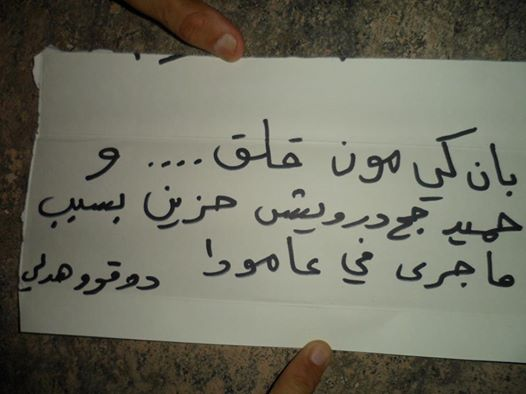 بان كي مون قلق .... و
حميد حج درويش حزين بسبب
ما جرى في عامودا دوقووهدلي